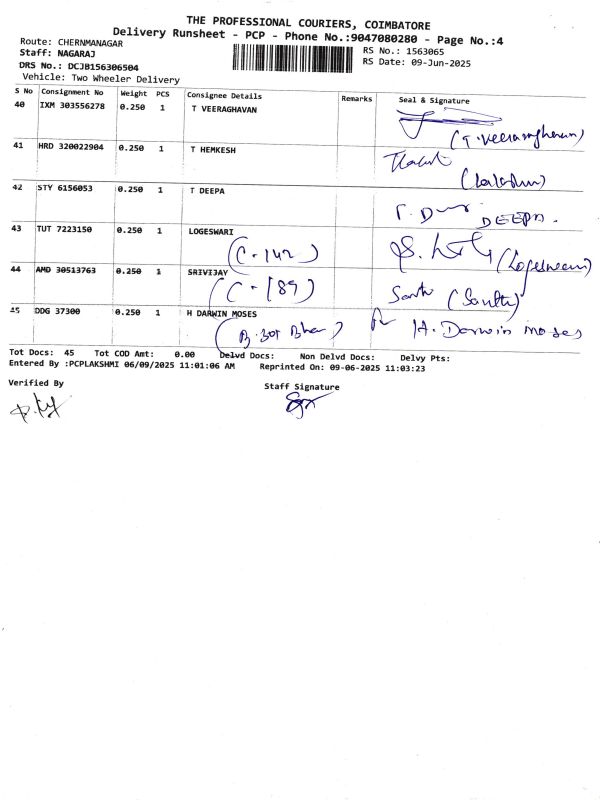 THE PROFESSIONAL COURIERS, COIMBATORE
Delivery Runsheet - PCP - Phone No.:9047080280 - Page No.:4
Route: CHERNMANAGAR
RS No.: 1563065
Staff: NAGARAJ
RS Date: 09-Jun-2025
DRS No.: DCJB156306504
Vehicle: Two Wheeler Delivery
S No Consignment No Weight PCS Consignee Details Remarks Seal & Signature
40 IXM 303556278 0.250 1 T VEERAGHAVAN
(T. Veeraraghavan)
41 HRD 320022904 0.250 1 T HEMKESH
42 STY 6156053 0.250 1 T DEEPA
T. DEEPA.
43 TUT 7223150 0.250 1 LOGESWARI
(C-142) (Logeswari)
44 AMD 30513763 0.250 1 SRIVIJAY
(C-189)
45 DDG 37300 0.250 1 H DARWIN MOSES
H. Darwin Moses
Tot Docs: 45 Tot COD Amt: 0.00 Delvd Docs: Non Delvd Docs: Delvy Pts:
Entered By :PCPLAKSHMI 06/09/2025 11:01:06 AM Reprinted On: 09-06-2025 11:03:23
Verified By
Staff Signature